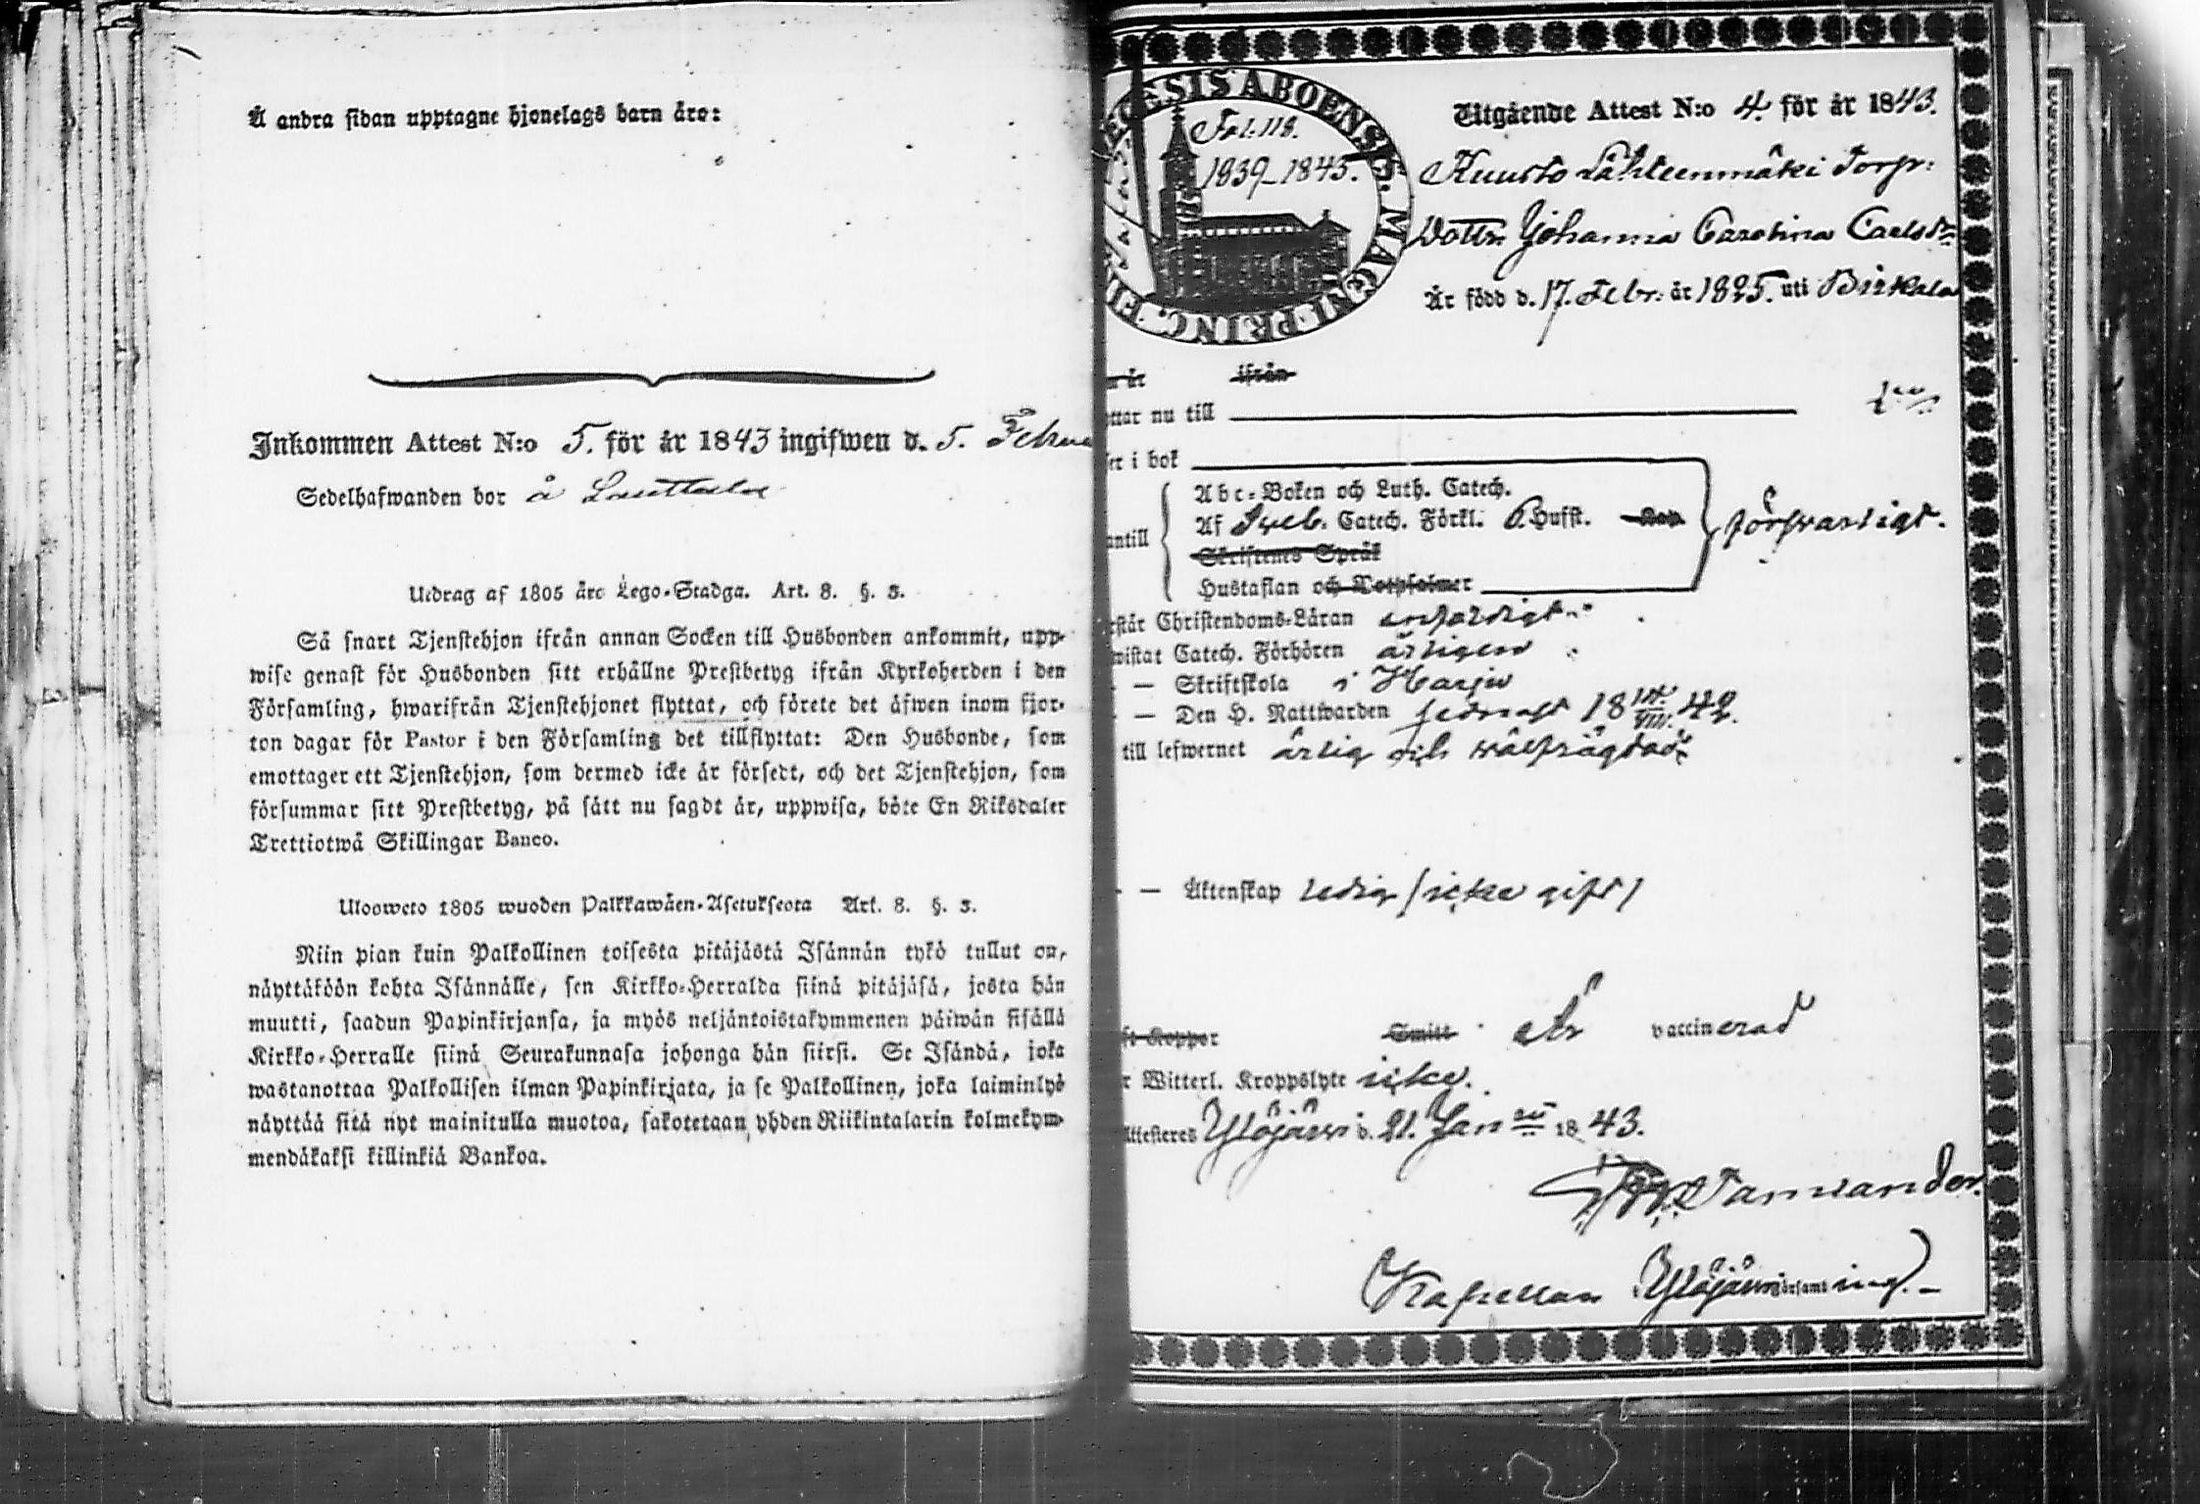 Å andra sidan upptagne hjonelags barn äro:
Inkommen Attest N:o 5. för år 1843 ingifwen d. 5. Febru
Sedelhafwanden bor å
Utdrag af 1805 års Lego-Stadga. Art. 8. §. 3.
Så snart Tjenstehjon ifrån annan Socken till Husbonden ankommit, upp-
wise genast för Husbonden sitt erhållne Prestbetyg ifrån Kyrkoherden i den
Församling, hwarifrån Tjenstehjonet flyttat, och förete det äfwen inom fjor-
ton dagar för Pastor i den Församling det tillflyttat: Den Husbonde, som
emottager ett Tjenstehjon, som dermed icke är försedt, och det Tjenstehjon, som
försummar sitt Prestbetyg, på sätt nu sagdt är, uppwisa, böte En Riksdaler
Trettiotwå Skillingar Banco.
Ulosweto 1805 wuoden Palkkawäen-Asetuksesta Art. 8. §. 3.
Niin pian kuin Palkollinen toisesta pitäjästä Isännän tykö tullut on,
näyttäköön kohta Isännälle, sen Kirkko-Herralda siinä pitäjäsä, josta hän
muutti, saadun Papinkirjansa, ja myös neljäntoistakymmenen päiwän sisällä
Kirkko-Herralle siinä Seurakunnasa johonga hän siirsi. Se Isändä, joka
wastanottaa Palkollisen ilman Papinkirjata, ja se Palkollinen, joka laiminlyö
näyttää sitä nyt mainitulla muotoa, sakotetaan yhden Riikintalarin kolmekym-
mendäkaksi killinkiä Bankoa.
ECESIS ABOENSIS. MAGNI PRINC. FI
Fol. 118.
1839-1843.
Utgående Attest N:o 4. för år 1843.
Kuusto Lähteenmäki Torp:
Dottn Johanna Carolina Carlsdr
Är född d. 17. Febr: år 1825. uti Birkala
år ifrån
ttar nu till
ser i bok
Abc-Boken och Luth. Catech.
Af Sveb. Catech. Förkl. Husst.
antill
Skriftenes Språk
Hustaflan och
försvarligt.
rstår Christendoms-Läran enfaldigt
wistat Catech. Förhören årligen
— Skriftskola i Harju
— Den H. Nattwarden sednast 18 42.
till lefwernet ärlig och wälfrägdad
— Äktenskap ledig /icke gift/
Koppor Smitt Är vaccinerad
r Witterl. Kroppslyte icke.
Attesteres Ylöjärwi d. 21. Jan 1843.
Tamlander.
Kapellan i Ylöjärwi församling. -